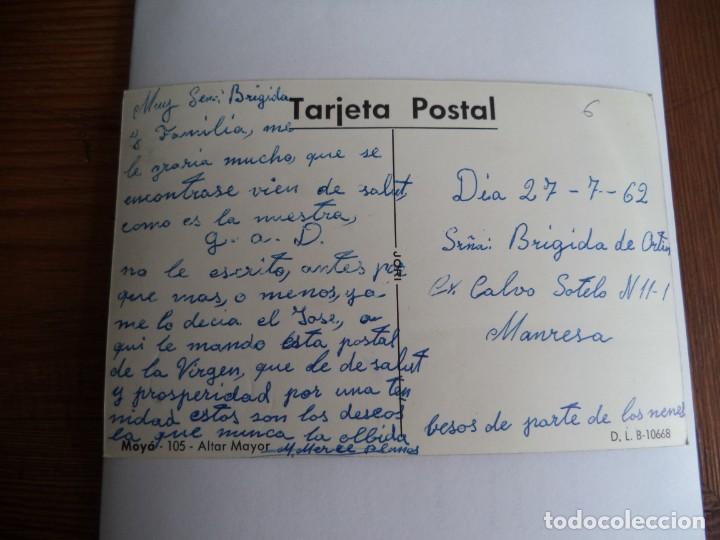 Tarjeta Postal
6
Muy Senr: Brigida
y Familia, me
le graria mucho, que se
encontrase vien de salut,
como es la nuestra,
g. a. D.
no le escrito, antes por
que mas, o menos, ya
me lo decia el Jose, a
qui le mando esta postal
de la Virgen, que le de salut
y prosperidad por una ten
nidad estos son los deseos
la que nunca la olbida
M. Merce
Dia 27-7-62
Srña: Brigida de Ortin
Cx. Calvo Sotelo N 11-1
Manresa
besos de parte de los nenes
JORI
Moyá - 105 - Altar Mayor
D. L. B-10668
todocoleccion
todocoleccion.net